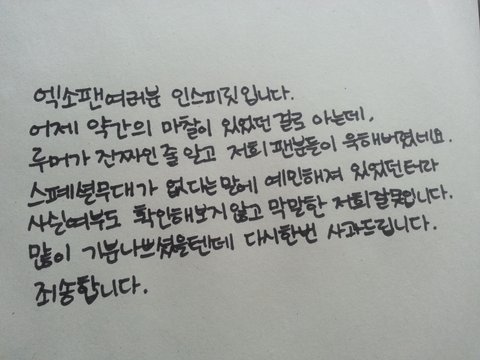 엑소팬여러분 인스피릿입니다.
어제 약간의 마찰이 있었던 걸로 아는데,
루머가 진짜인 줄 알고 저희 팬분들이 욕해버렸네요.
스페셜무대가 없다는 말에 예민해져 있었던터라
사실여부도 확인해보지않고 막말한 저희잘못입니다.
많이 기분나쁘셨을텐데 다시한번 사과드립니다.
죄송합니다.